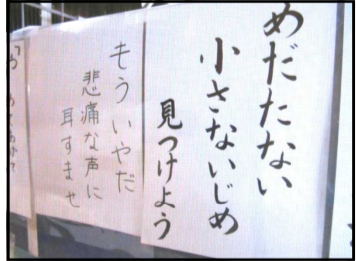 めだたない
小さないじめ
見つけよう
もういやだ
悲痛な声に
耳すませ